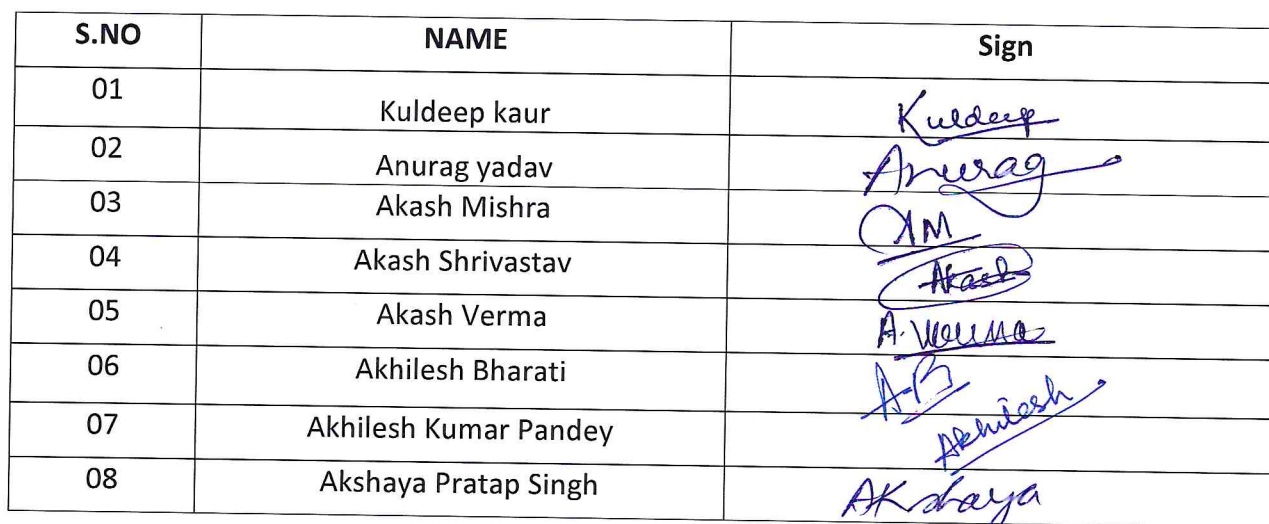 S.NO NAME Sign
01 Kuldeep kaur Kuldeep
02 Anurag yadav Anurag
03 Akash Mishra AM
04 Akash Shrivastav Akash
05 Akash Verma A. Verma
06 Akhilesh Bharati A-B
07 Akhilesh Kumar Pandey Akhilesh
08 Akshaya Pratap Singh Akshaya